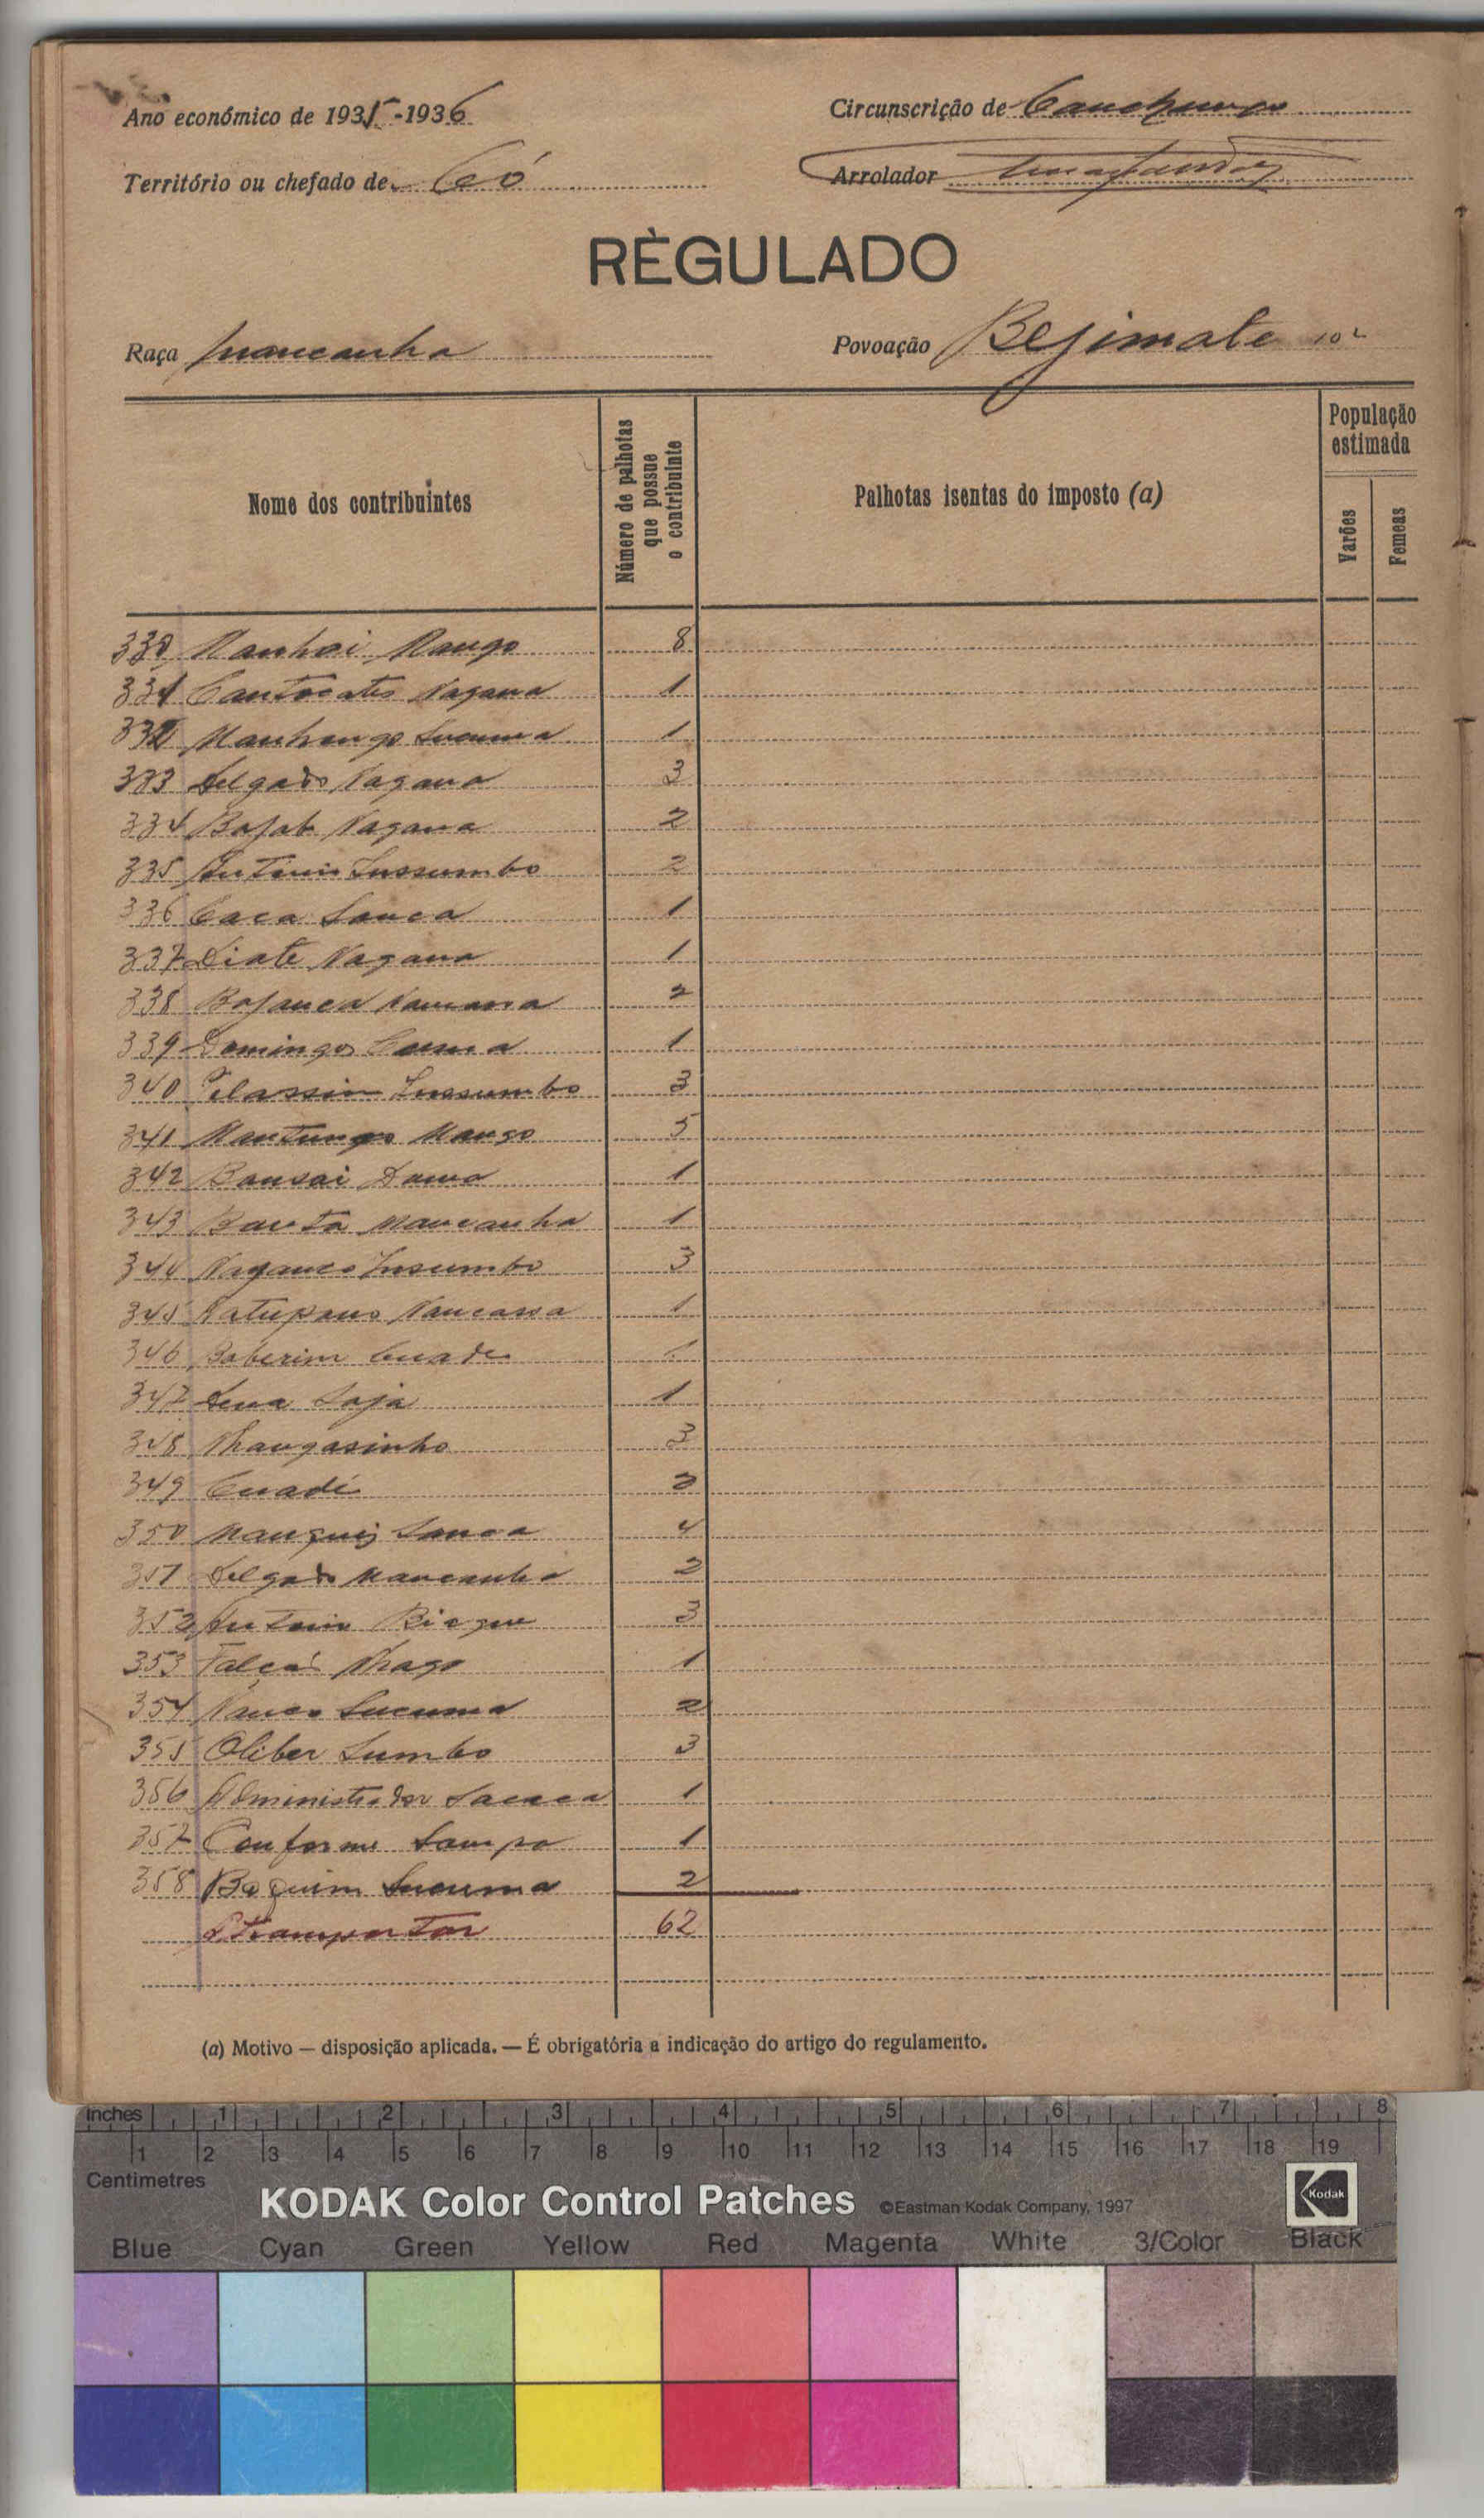 Ano económico de 1935-1936
Circunscrição de Canchungo
Território ou chefado de Có
Arrolador
RÈGULADO
Raça Mancanha
Povoação Bejimate 102
Nome dos contribuintes
Número de palhotas que possue o contribuinte
Palhotas isentas do imposto (a)
População estimada
Varões
Femeas
330 Nanhai Nango 8
331 Nagana 1
332 Manhongo Sucuma 1
333 Delgado Nagana 3
334 Bajab Nagana 2
335 António Sussumbo 2
336 Caca Sanca 1
337 Diate Nagana 1
338 2
339 Domingos 1
340 3
341 Mantungo Mango 5
342 Bansai 1
343 Mancanha 1
344 3
345 1
346 Boberim Cuade 1
347 Sena Soja 1
348 Nhangasinho 3
349 Cuadi 2
350 Sanca 4
351 Delgado Mancanha 2
352 António Biague 3
353 Falcá Nhago 1
354 Sucuma 2
355 Oliber Sumbo 3
356 Administrador Sacaca 1
357 Conforme Sampa 1
358 Baquim Sucuma 2
A transportar 62
(a) Motivo — disposição aplicada. — É obrigatória a indicação do artigo do regulamento.
Inches 1 2 3 4 5 6 7 8
1 2 3 4 5 6 7 8 9 10 11 12 13 14 15 16 17 18 19
Centimetres
KODAK Color Control Patches ©Eastman Kodak Company, 1997 Kodak
Blue Cyan Green Yellow Red Magenta White 3/Color Black